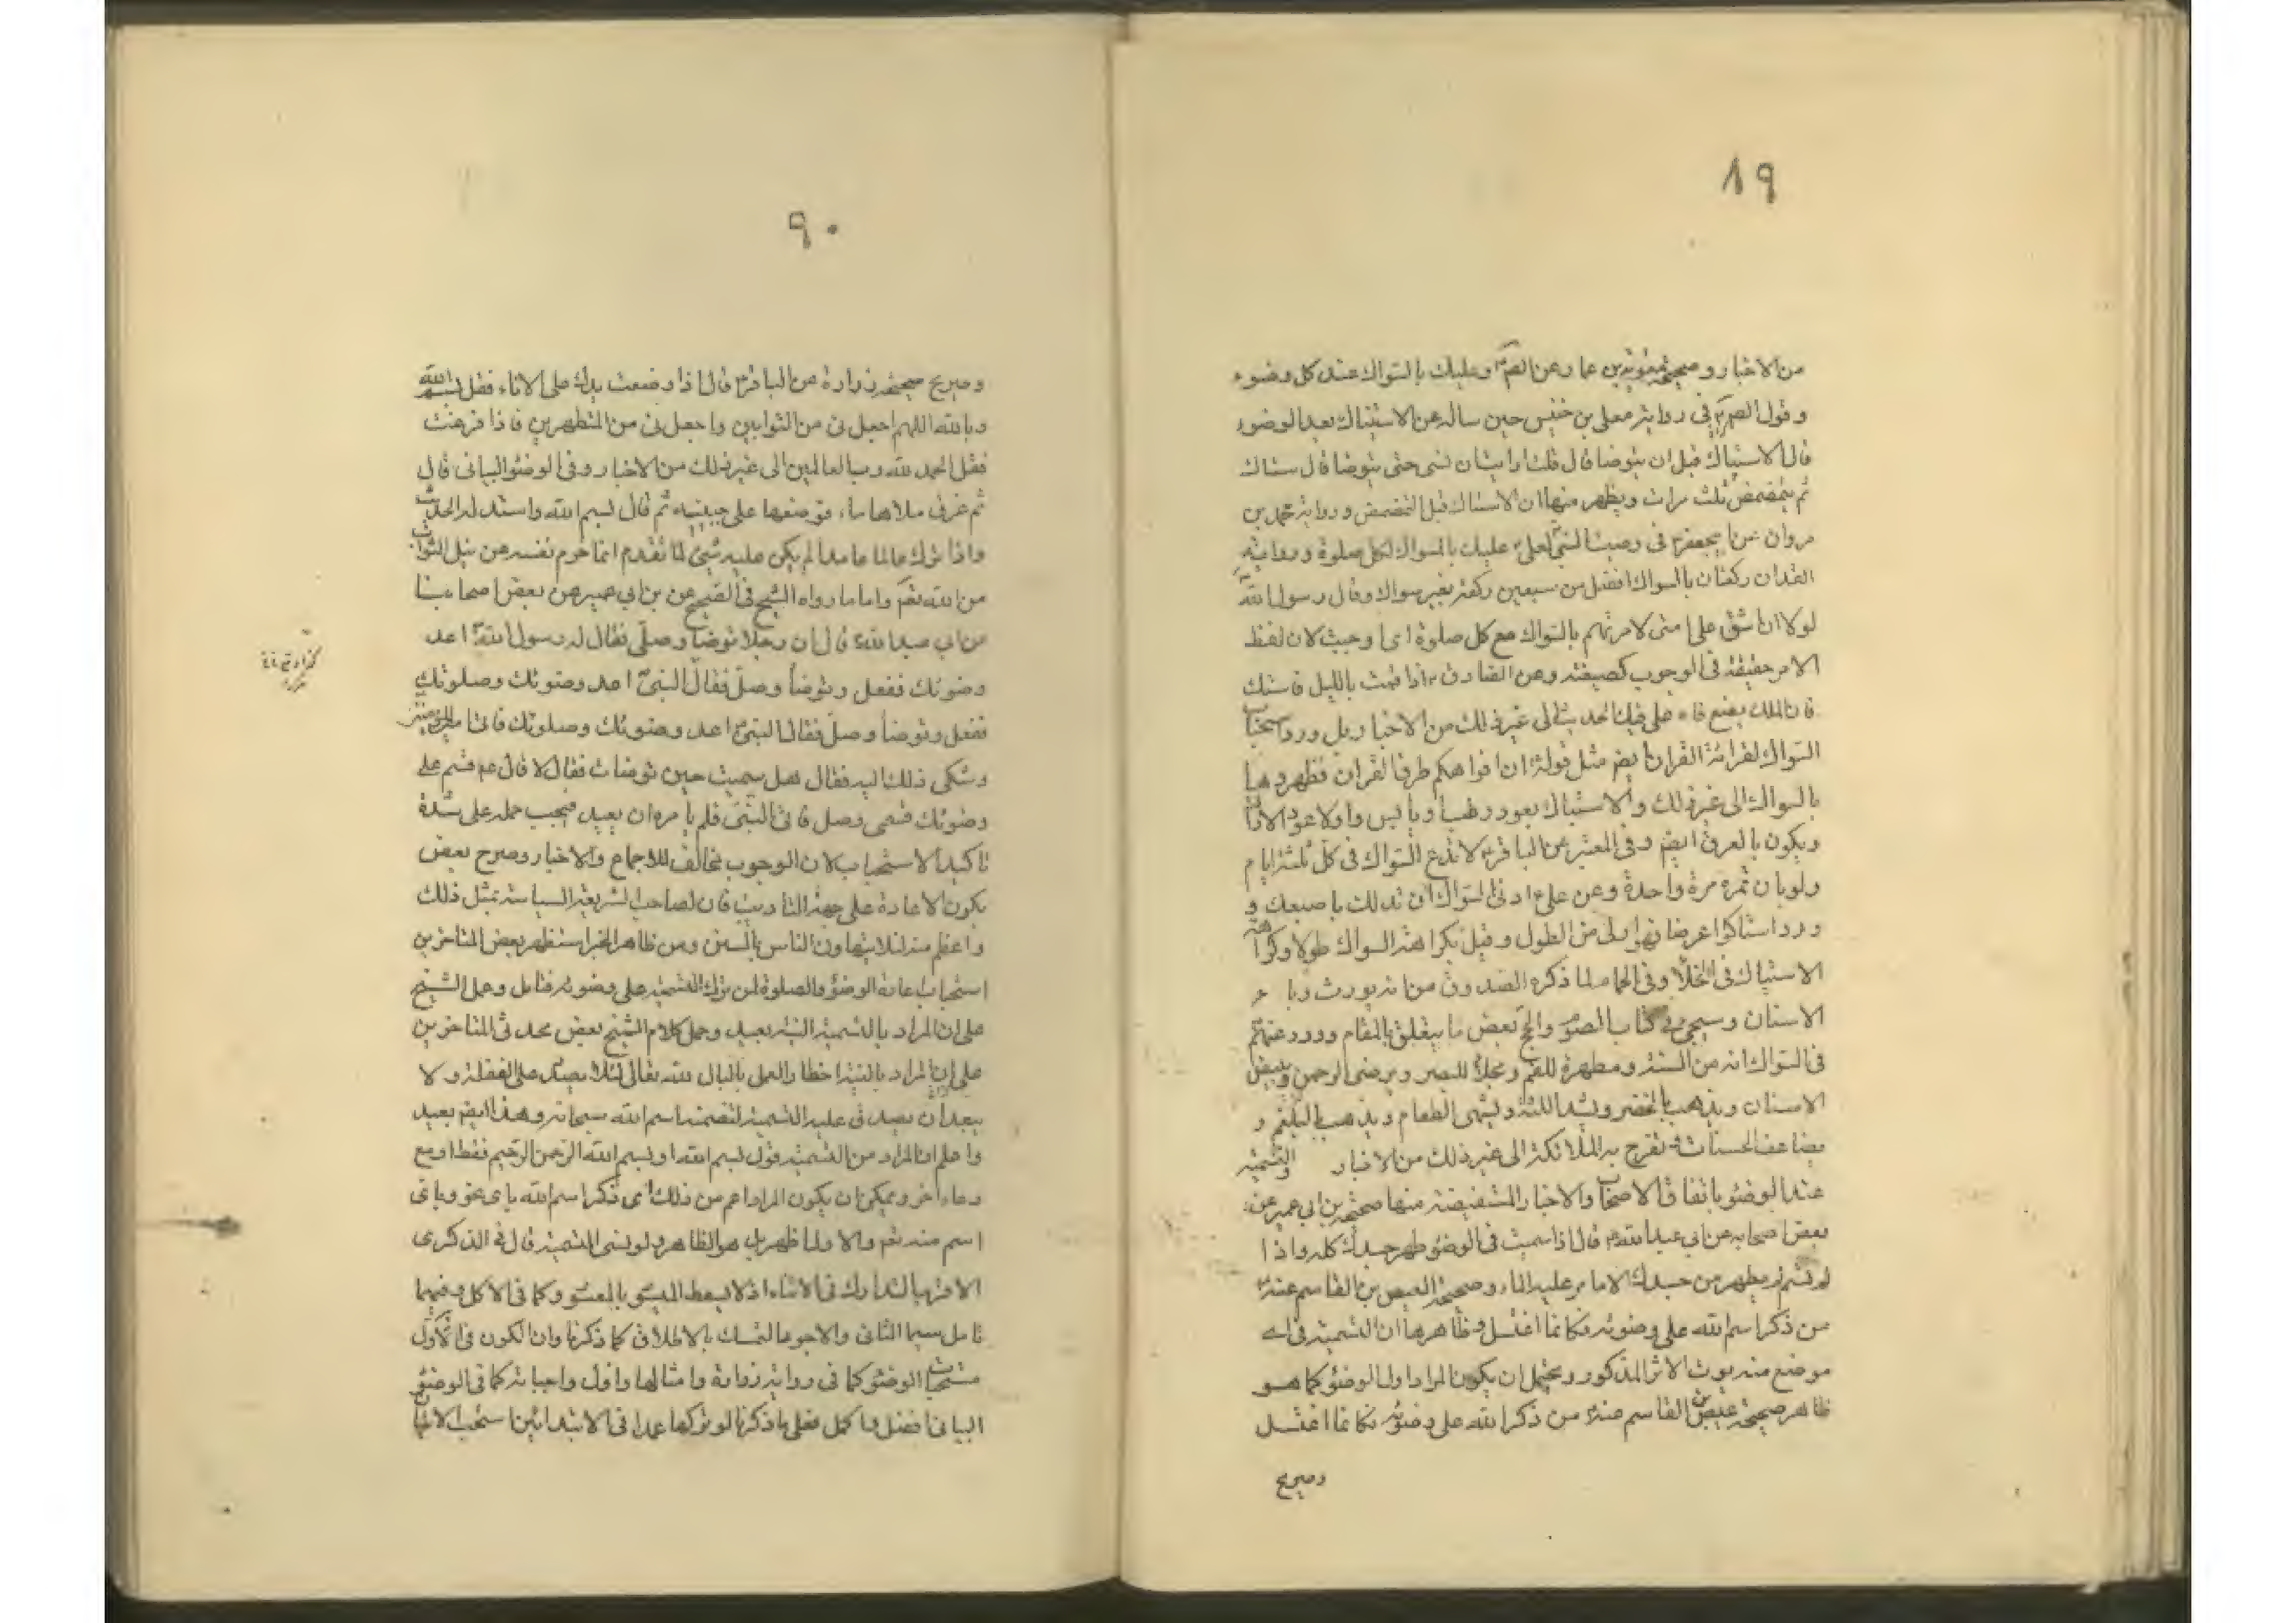 ٨٩
من الاخبار وصحيحة معوية بن عمار عن الصم وعليك بالسواك عند كل وضوء
وقول الصم في رواية معلى بن خنيس حين ساله عن الاستياك بعد الوضوء
قال الاستياك قبل ان يتوضا قال قلت ارايت ان نسى حتى يتوضا قال يستاك
ثم يتمضمض ثلث مرات ويظهر منها ان الاستياك قبل التمضمض ورواية محمد بن
مروان عن ابي جعفر في وصية النبي لعلي عليك بالسواك لكل صلوة ورواية
القداح ركعتان بالسواك افضل من سبعين ركعة بغير سواك وقال رسول الله
لولا ان اشق على امتى لامرتهم بالسواك مع كل صلوة اى اوجبت لان لفظ
الامر حقيقة في الوجوب كصيغته وعن الصادق اذا قمت بالليل فاستك
فان الملك يضع فاه على فيك الحديث الى غير ذلك من الاخبار بل ورد استحباب
السواك لقرائة القران ايضم مثل قوله ان افواهكم طرق القران فطهروها
بالسواك الى غير ذلك والاستياك بعود رطب او يابس واولاه عود الاراك
ويكون بالعرض ايضم وفي المعتبر عن الباقر لا تدع السواك في كل ثلثة ايام
ولو بان تمره مرة واحدة وعن علي ادنى السواك ان تدلك باصبعك و
ورد استاكوا عرضا فهو اولى من الطول وقيل بكراهة السواك طولا وكراهة
الاستياك في الخلاء وفي الحمام لما ذكره الصدوق من انه يورث وباء
الاسنان وسيجئ في كتاب الصوم والحج بعض ما يتعلق بالمقام وورد عنهم
في السواك انه من السنة ومطهرة للفم ومجلاة للبصر ويرضى الرحمن ويبيض
الاسنان ويذهب بالحفر ويشد اللثة ويشهى الطعام ويذهب بالبلغم و
يضاعف الحسنات وتفرح به الملائكة الى غير ذلك من الاخبار والتسمية
عند الوضوء باتفاق الاصحاب والاخبار المستفيضة منها صحيحة بن ابي عمير عن
بعض اصحابه عن ابي عبد الله قال اذا سميت في الوضوء طهر جسدك كله واذا
لم تسم لم يطهر من جسدك الا ما مر عليه الماء وصحيحة العيص بن القاسم عنه
من ذكر اسم الله على وضوئه فكانما اغتسل وظاهرها ان التسمية في اى
موضع منه يورث الاثر المذكور ويحتمل ان يكون المراد اول الوضوء كما هو
ظاهر صحيحة عيص بن القاسم عنه من ذكر الله على وضوئه فكانما اغتسل
وصريح
٩٠
وصريح صحيحة زرارة عن الباقر قال اذا وضعت يدك على الاناء فقل بسم الله
وبالله اللهم اجعلنى من التوابين واجعلنى من المتطهرين فاذا فرغت
فقل الحمد لله رب العالمين الى غير ذلك من الاخبار وفي الوضوء البيانى قال
ثم غرف ملاها ماء فوضعها على جبينه ثم قال بسم الله واسدله الحديث
واذا ترك عالما عامدا لم يكن عليه شئ لما تقدم انما حرم نفسه من نيل الثواب
من الله نعم واما ما رواه الشيخ في الصحيح عن بن ابي عمير عن بعض اصحابنا
عن ابي عبد الله قال ان رجلا توضا وصلى فقال له رسول الله اعد
وضوئك ففعل وتوضأ وصل فقال النبي اعد وضوئك وصلوتك
ففعل وتوضأ وصل فقال النبي اعد وضوئك وصلوتك فاتى امير المؤمنين
وشكى ذلك اليه فقال هل سميت حين توضات فقال لا قال عم فسم على
وضوئك فسمى وصل فاتى النبي فلم يامره ان يعيد فيجب حمله على شدة
تاكيد الاستحباب لان الوجوب مخالف للاجماع والاخبار وصرح بعض
بكون الاعادة على جهة التاديب فان لصاحب الشريعة السياسة بمثل ذلك
واعظم منه لئلا يتهاون الناس بالسنن ومن ظاهر الخبر استظهر بعض المتاخرين
استحباب اعادة الوضوء والصلوة لمن ترك التسمية على وضوئه فتامل وحمل الشيخ
على ان المراد بالتسمية النية بعيد وحمل كلام الشيخ بعض محدثى المتاخرين
على ان المراد بالنية اخطار العمل بالبال لله تعالى لئلا يصدر على الغفلة ولا
يبعد ان يصدق عليه التسمية لتضمنه اسم الله سبحانه وهذا ايضم بعيد
واعلم ان المراد من التسمية قول بسم الله او بسم الله الرحمن الرحيم فقط او مع
دعاء اخر ويمكن ان يكون المراد اعم من ذلك اى ذكر اسم الله باى نحو وباى
اسم منه نعم والاول اظهر بل هو الظاهر ولو نسى التسمية قال في الذكرى
الاقرب التدارك في الاثناء اذ لا يسقط الميسور بالمعسور وكما في الاكل وفيهما
تامل سيما الثانى والاجود التمسك بالاطلاق كما ذكرنا وان الكون في الاول
مستحبات الوضوء كما في رواية زرارة وامثالها واول واجباته كما في الوضوء
البيانى افضل واكمل فعلى ما ذكرنا لو تركها عمدا في الابتدائين استحب الاتيان